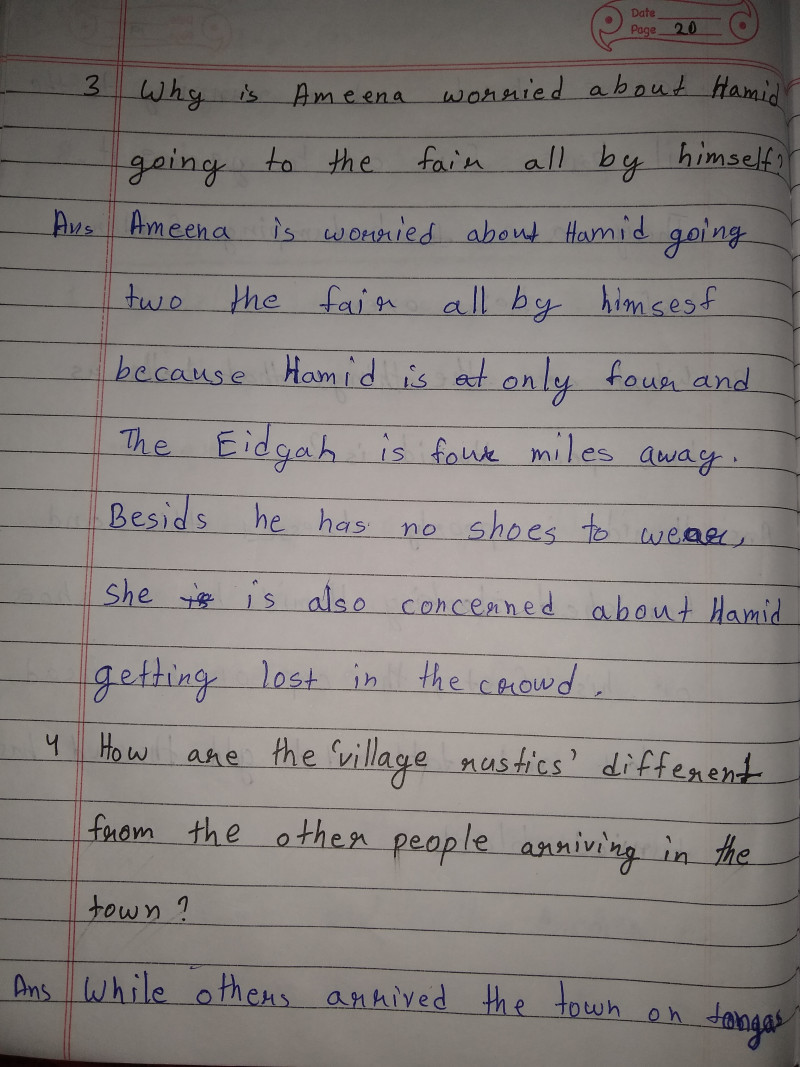 Date
Page 20
3 Why is Ameena worried about Hamid
going to the fair all by himself?
Ans Ameena is worried about Hamid going
two the fair all by himsesf
because Hamid is at only four and
The Eidgah is four miles away.
Besids he has no shoes to wear,
she is is also concerned about Hamid
getting lost in the crowd.
4 How are the 'village rustics' different
from the other people arriving in the
town?
Ans While others arrived the town on tongas